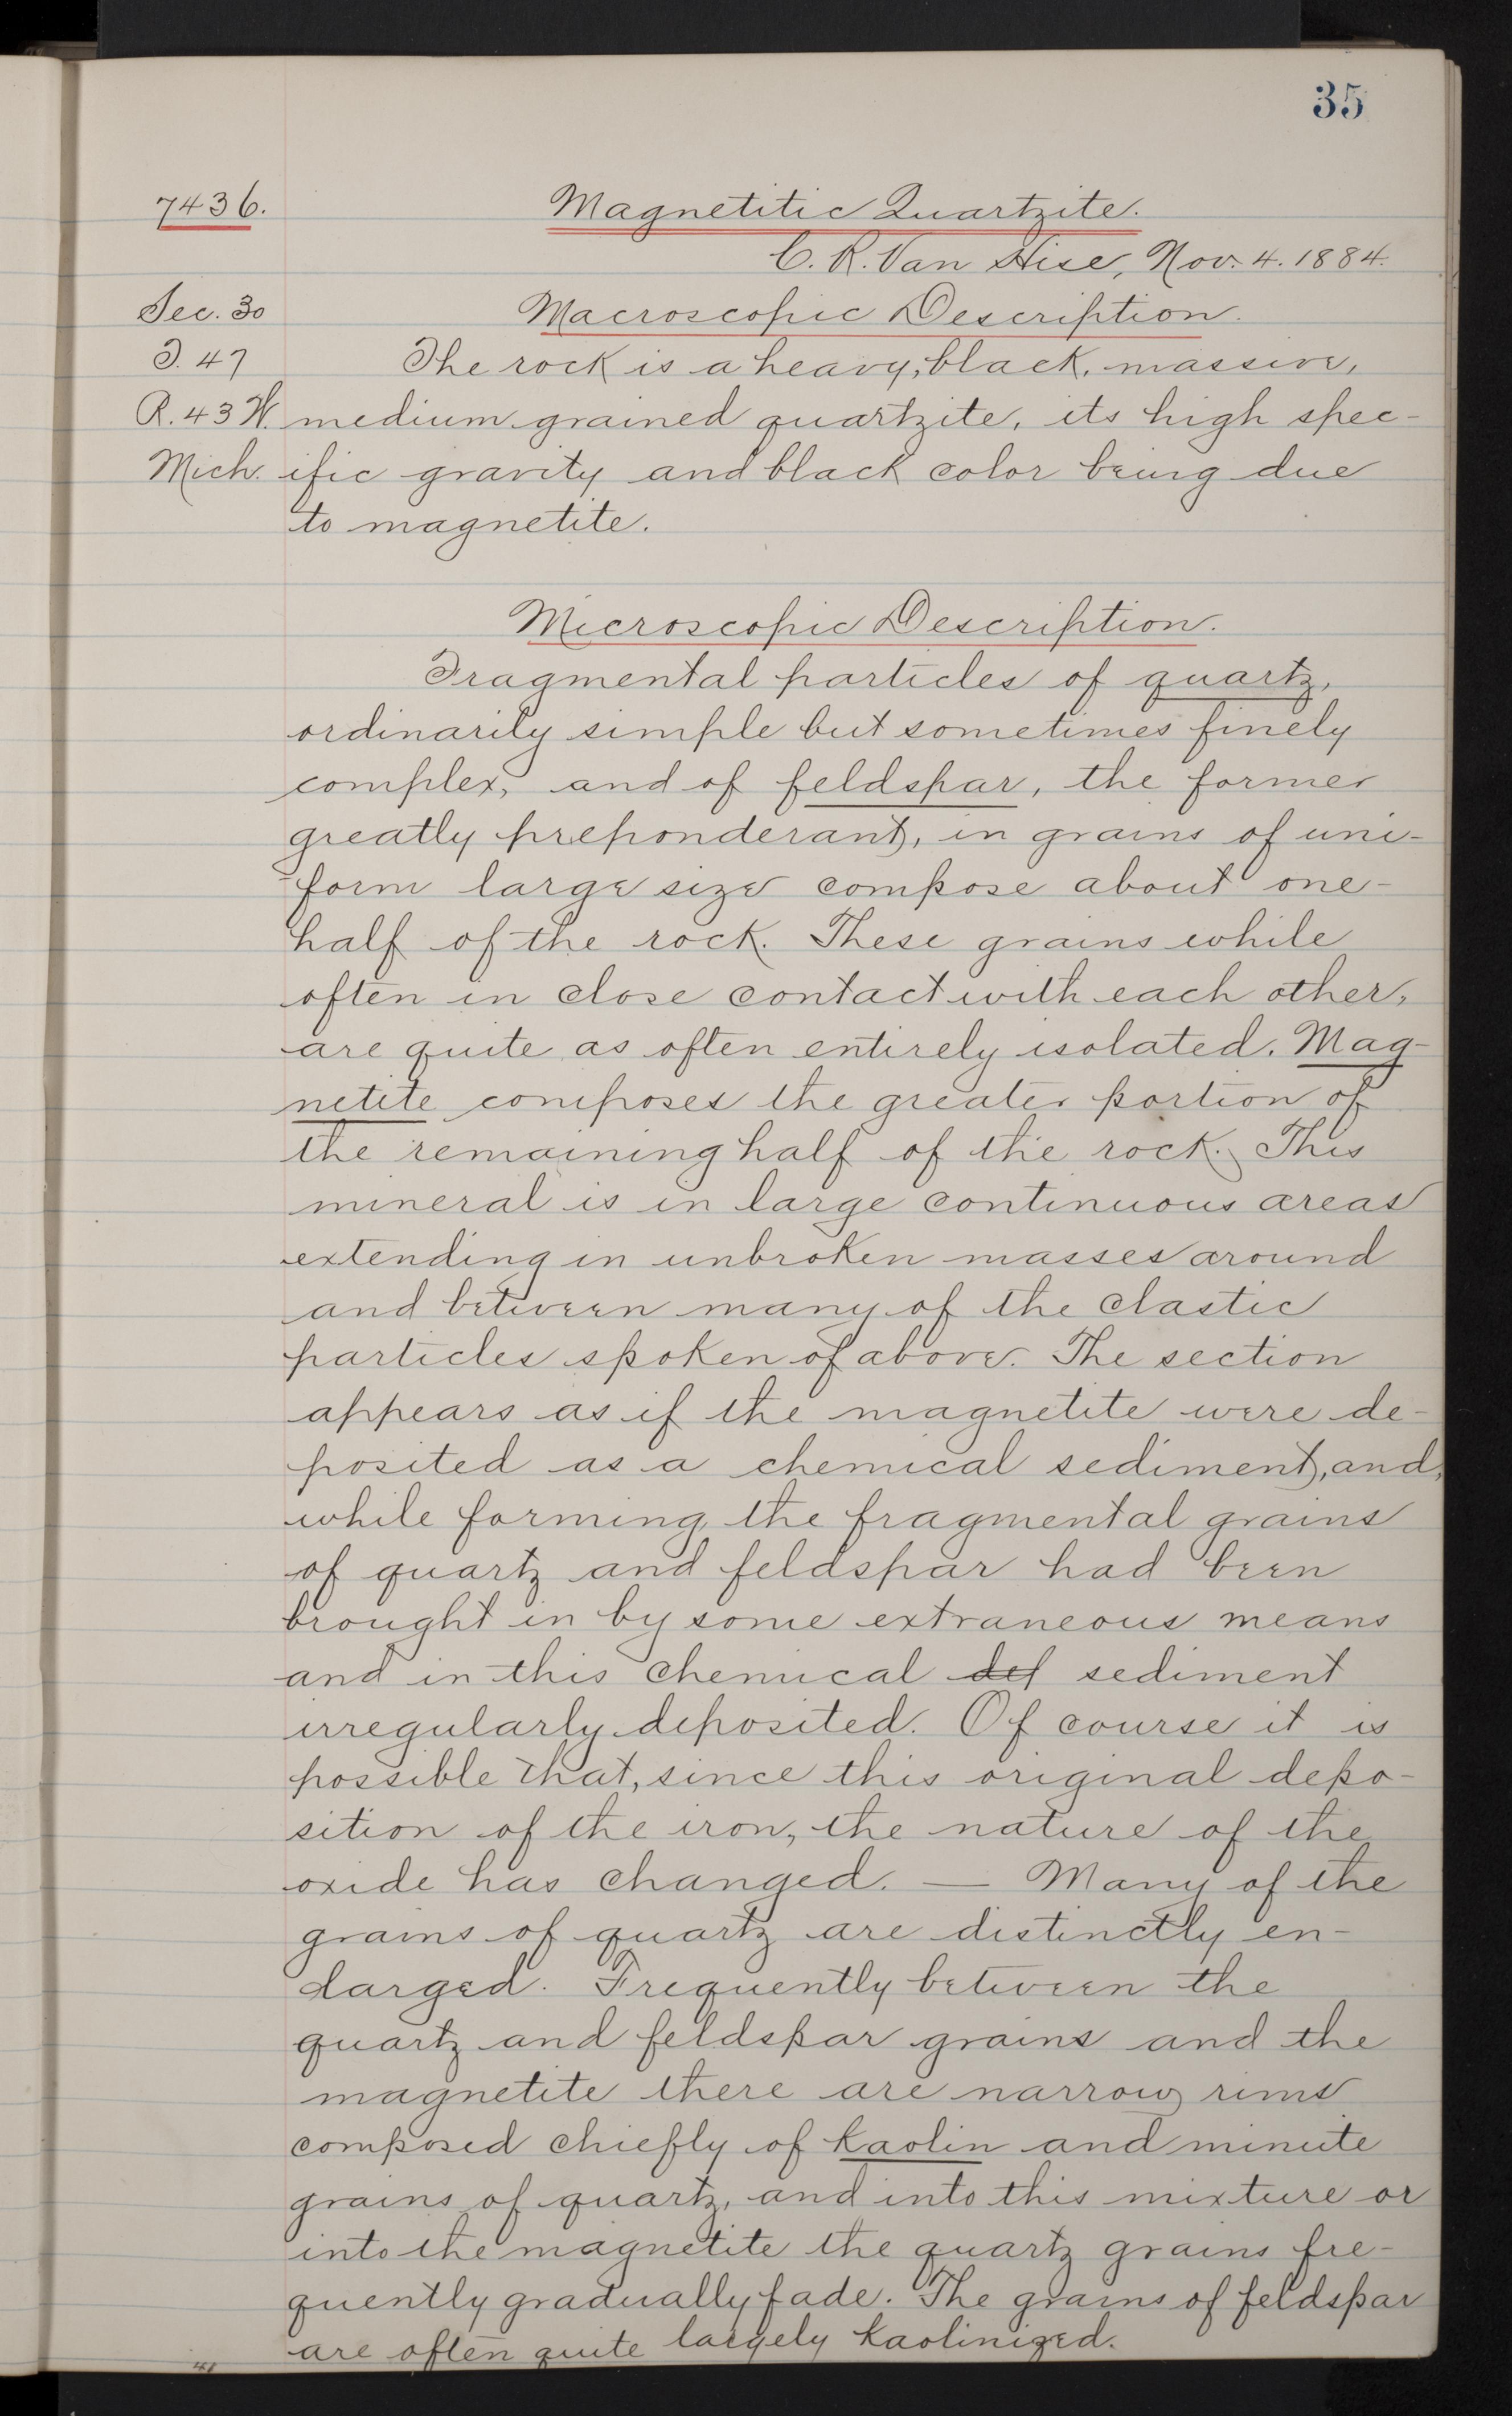 35
7436. Magnetitic Quartzite.
C. R. Van Hise, Nov. 4. 1884.
Sec. 30 Macroscopic Description.
T. 47 The rock is a heavy, black, massive,
R. 43 W. medium grained quartzite, its high spec-
Mich. ific gravity and black color being due
to magnetite.
Microscopic Description.
Fragmental particles of quartz,
ordinarily simple but sometimes finely
complex, and of feldspar, the former
greatly preponderant, in grains of uni-
form large size compose about one-
half of the rock. These grains while
often in close contact with each other,
are quite as often entirely isolated. Mag-
netite composes the greater portion of
the remaining half of the rock. This
mineral is in large continuous areas
extending in unbroken masses around
and between many of the clastic
particles spoken of above. The section
appears as if the magnetite were de-
posited as a chemical sediment, and,
while forming, the fragmental grains
of quartz and feldspar had been
brought in by some extraneous means
and in this chemical def sediment
irregularly deposited. Of course it is
possible that, since this original depo-
sition of the iron, the nature of the
oxide has changed. — Many of the
grains of quartz are distinctly en-
larged. Frequently between the
quartz and feldspar grains and the
magnetite there are narrow rims
composed chiefly of kaolin and minute
grains of quartz, and into this mixture or
into the magnetite the quartz grains fre-
quently gradually fade. The grains of feldspar
are often quite largely kaolinized.